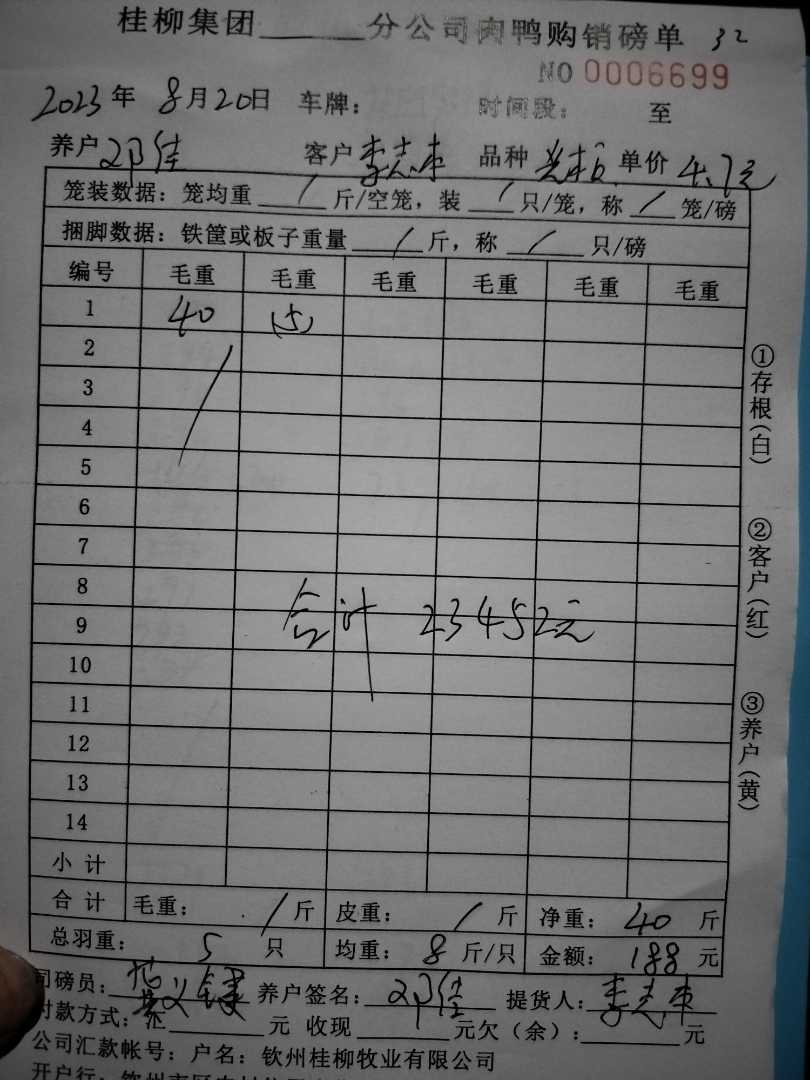 桂柳集团______分公司肉鸭购销磅单 32
NO 0006699
2023年 8月20日 车牌: 时间段: 至
养户 邓佳 客户 李志本 品种 单价 4.7元
笼装数据: 笼均重 / 斤/空笼, 装 / 只/笼, 称 / 笼/磅
捆脚数据: 铁筐或板子重量 / 斤, 称 / 只/磅
编号 毛重 毛重 毛重 毛重 毛重 毛重
1 40 (5)
2
3
4
5
6
7
8
9
合计 23452元
10
11
12
13
14
小计
合计 毛重: / 斤 皮重: / 斤 净重: 40 斤
总羽重: 5 只 均重: 8 斤/只 金额: 188 元
司磅员: 养户签名: 邓佳 提货人: 李志本
付款方式: 汇______元 收现______元欠(余):______元
公司汇款帐号: 户名: 钦州桂柳牧业有限公司
开户行:
①存根(白)
②客户(红)
③养户(黄)